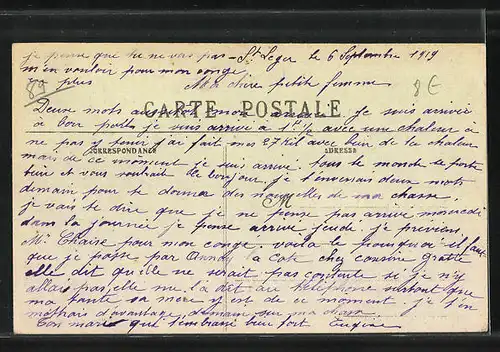 je pense que tu ne vas pas - St Leger le 6 Septembre 1919
m'en vouloir pour mon conge
plus Ma chère petite femme
89 8€
CARTE POSTALE
Deux mots mon je suis arrivée
à bon port je suis arrivé à 1 H ½ avec une chaleur à
ne pas y tenir j'ai fait mes 27 Kil avec bien de la chaleur
CORRESPONDANCE ADRESSE
mais de ce moment je suis arrivé tous le monde se porte
bien et vous souhaite le bonjour. je t'enverrais deux mots
demain pour te donner des nouvelles de ma chasse.
je vais te dire que je ne pense pas arrivé mercredi
dans la journée je pense arrivé jeudi. je previens
Mr Chaise pour mon conge. voila le pourquoi il faut
que je passe par la Cote chez cousine
elle dit qu'elle ne serait pas contente si je n'y
allais pas elle me l'a dit au téléphone surtout que
ma tante sa mere y est de ce moment. je t'en
d'avantage demain sur ma chasse.
Ton mari qui t'embrasse bien fort Eugène